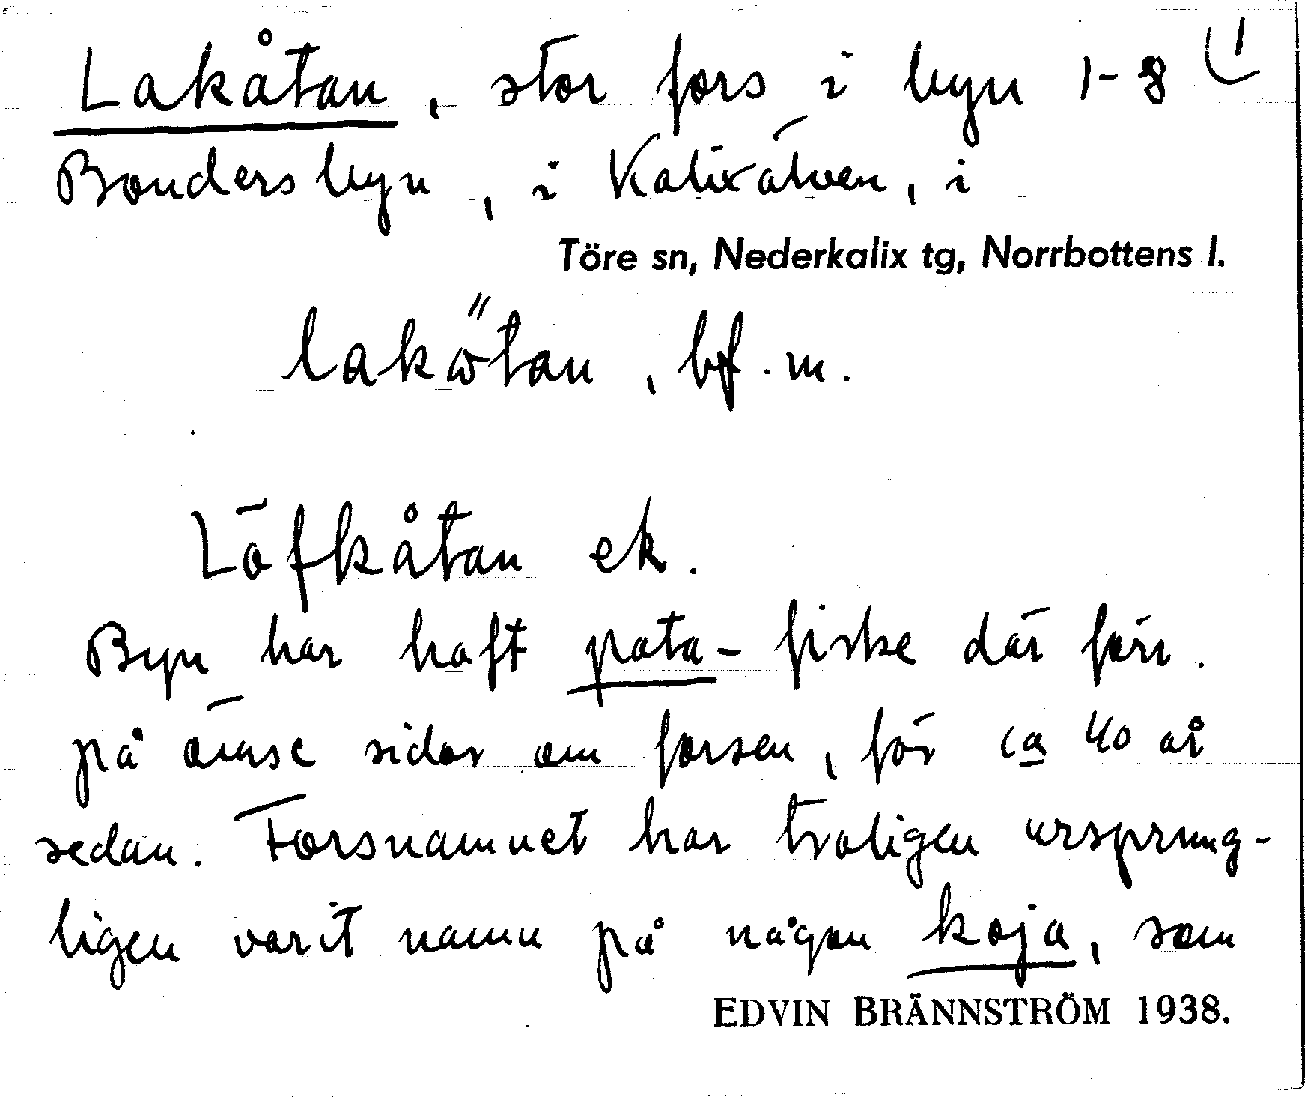 Lakåtan, stor fors i byn 1-8 (1
Bondersbyn, i Kalixälven, i
Töre sn, Nederkalix tg, Norrbottens l.
lakω̋tan, bf. m.
Löfkåtan ek.
Byn har haft pata-fiske där förr.
på ömse sidor om forsen, för ca 40 år
sedan. Forsnamnet har troligen ursprung-
ligen varit namn på någon koja, som
EDVIN BRÄNNSTRÖM 1938.